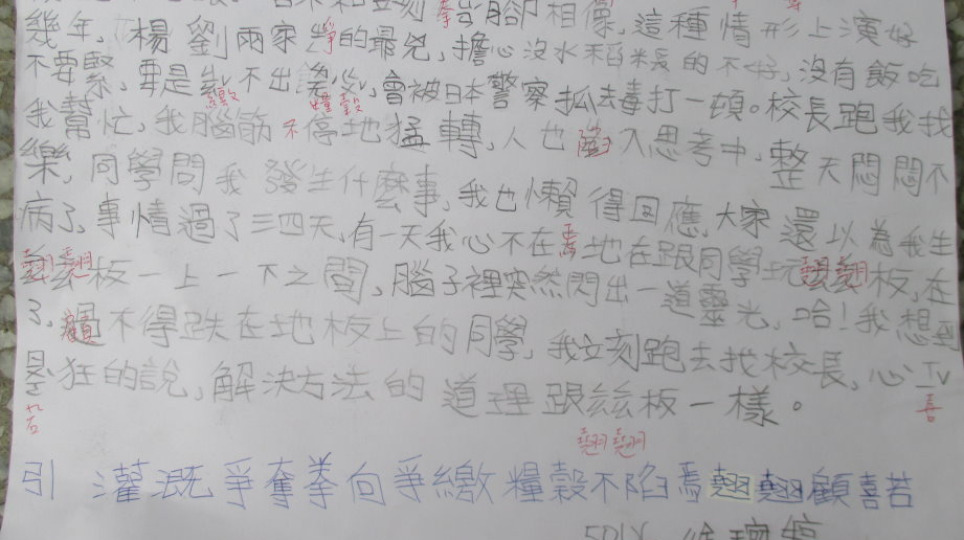 相像,這種情形上演好
幾年,楊劉兩家爭的最兇,擔心沒水稻長的不好,沒有飯吃
不要緊,要是繳不出糧穀,會被日本警察抓去毒打一頓。校長跑我找
我幫忙,我腦筋不停地猛轉,人也陷入思考中,整天悶悶不
樂,同學問我發生什麼事,我也懶得回應,大家還以為我生
病了,事情過了三四天,有一天我心不在焉地在跟同學玩翹翹板,在
翹翹板一上一下之間,腦子裡突然閃出一道靈光,哈!我想到
了,顧不得跌在地板上的同學,我立刻跑去找校長,心
若狂的說,解決方法的道理跟板一樣。
喜
翹翹
引 灌溉爭奪拳向爭繳糧穀不陷焉翹翹顧喜若